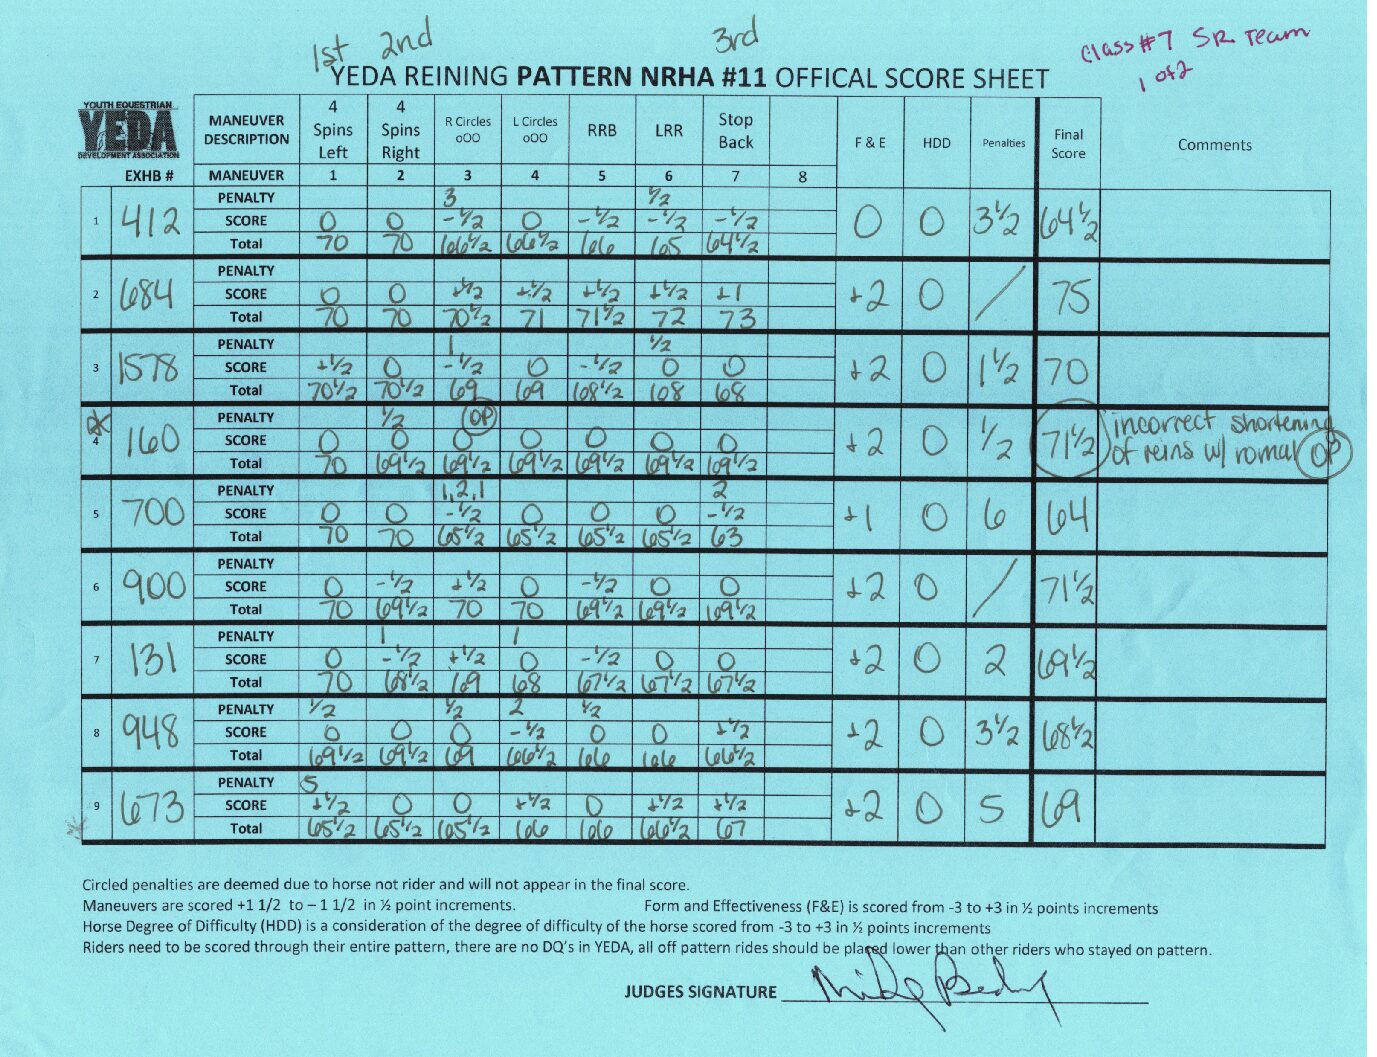 1st 2nd 3rd
Class #7 SR Team
1 of 2
YEDA REINING PATTERN NRHA #11 OFFICAL SCORE SHEET
YOUTH EQUESTRIAN
YEDA
DEVELOPMENT ASSOCIATION
MANEUVER DESCRIPTION 4 Spins Left 4 Spins Right R Circles oOO L Circles oOO RRB LRR Stop Back F & E HDD Penalties Final Score Comments
EXHB # MANEUVER 1 2 3 4 5 6 7 8
PENALTY 3 1/2
1 412 SCORE 0 0 -1/2 0 -1/2 -1/2 -1/2 0 0 3 1/2 64 1/2
Total 70 70 66 1/2 66 1/2 66 165 64 1/2
PENALTY
2 684 SCORE 0 0 +1/2 +1/2 +1/2 +1/2 +1 +2 0 / 75
Total 70 70 70 1/2 71 71 1/2 72 73
PENALTY 1 1/2
3 1578 SCORE +1/2 0 -1/2 0 -1/2 0 0 +2 0 1 1/2 70
Total 70 1/2 70 1/2 69 69 68 1/2 68 68
PENALTY 1/2 OP
4 160 SCORE 0 0 0 0 0 0 0 +2 0 1/2 71 1/2 incorrect shortening
Total 70 69 1/2 69 1/2 69 1/2 69 1/2 69 1/2 69 1/2 of reins w/ romal OP
PENALTY 1,2,1 2
5 700 SCORE 0 0 -1/2 0 0 0 -1/2 +1 0 6 64
Total 70 70 65 1/2 65 1/2 65 1/2 65 1/2 63
PENALTY
6 900 SCORE 0 -1/2 +1/2 0 -1/2 0 0 +2 0 / 71 1/2
Total 70 69 1/2 70 70 69 1/2 69 1/2 69 1/2
PENALTY 1 1
7 131 SCORE 0 -1/2 +1/2 0 -1/2 0 0 +2 0 2 69 1/2
Total 70 68 1/2 69 68 67 1/2 67 1/2 67 1/2
PENALTY 1/2 1/2 2 1/2
8 948 SCORE 0 0 0 -1/2 0 0 +1/2 +2 0 3 1/2 68 1/2
Total 69 1/2 69 1/2 69 66 1/2 66 66 66 1/2
PENALTY 5
9 673 SCORE +1/2 0 0 +1/2 0 +1/2 +1/2 +2 0 5 69
Total 65 1/2 65 1/2 65 1/2 66 66 66 1/2 67
Circled penalties are deemed due to horse not rider and will not appear in the final score.
Maneuvers are scored +1 1/2 to – 1 1/2 in ½ point increments. Form and Effectiveness (F&E) is scored from -3 to +3 in ½ points increments
Horse Degree of Difficulty (HDD) is a consideration of the degree of difficulty of the horse scored from -3 to +3 in ½ points increments
Riders need to be scored through their entire pattern, there are no DQ's in YEDA, all off pattern rides should be placed lower than other riders who stayed on pattern.
JUDGES SIGNATURE